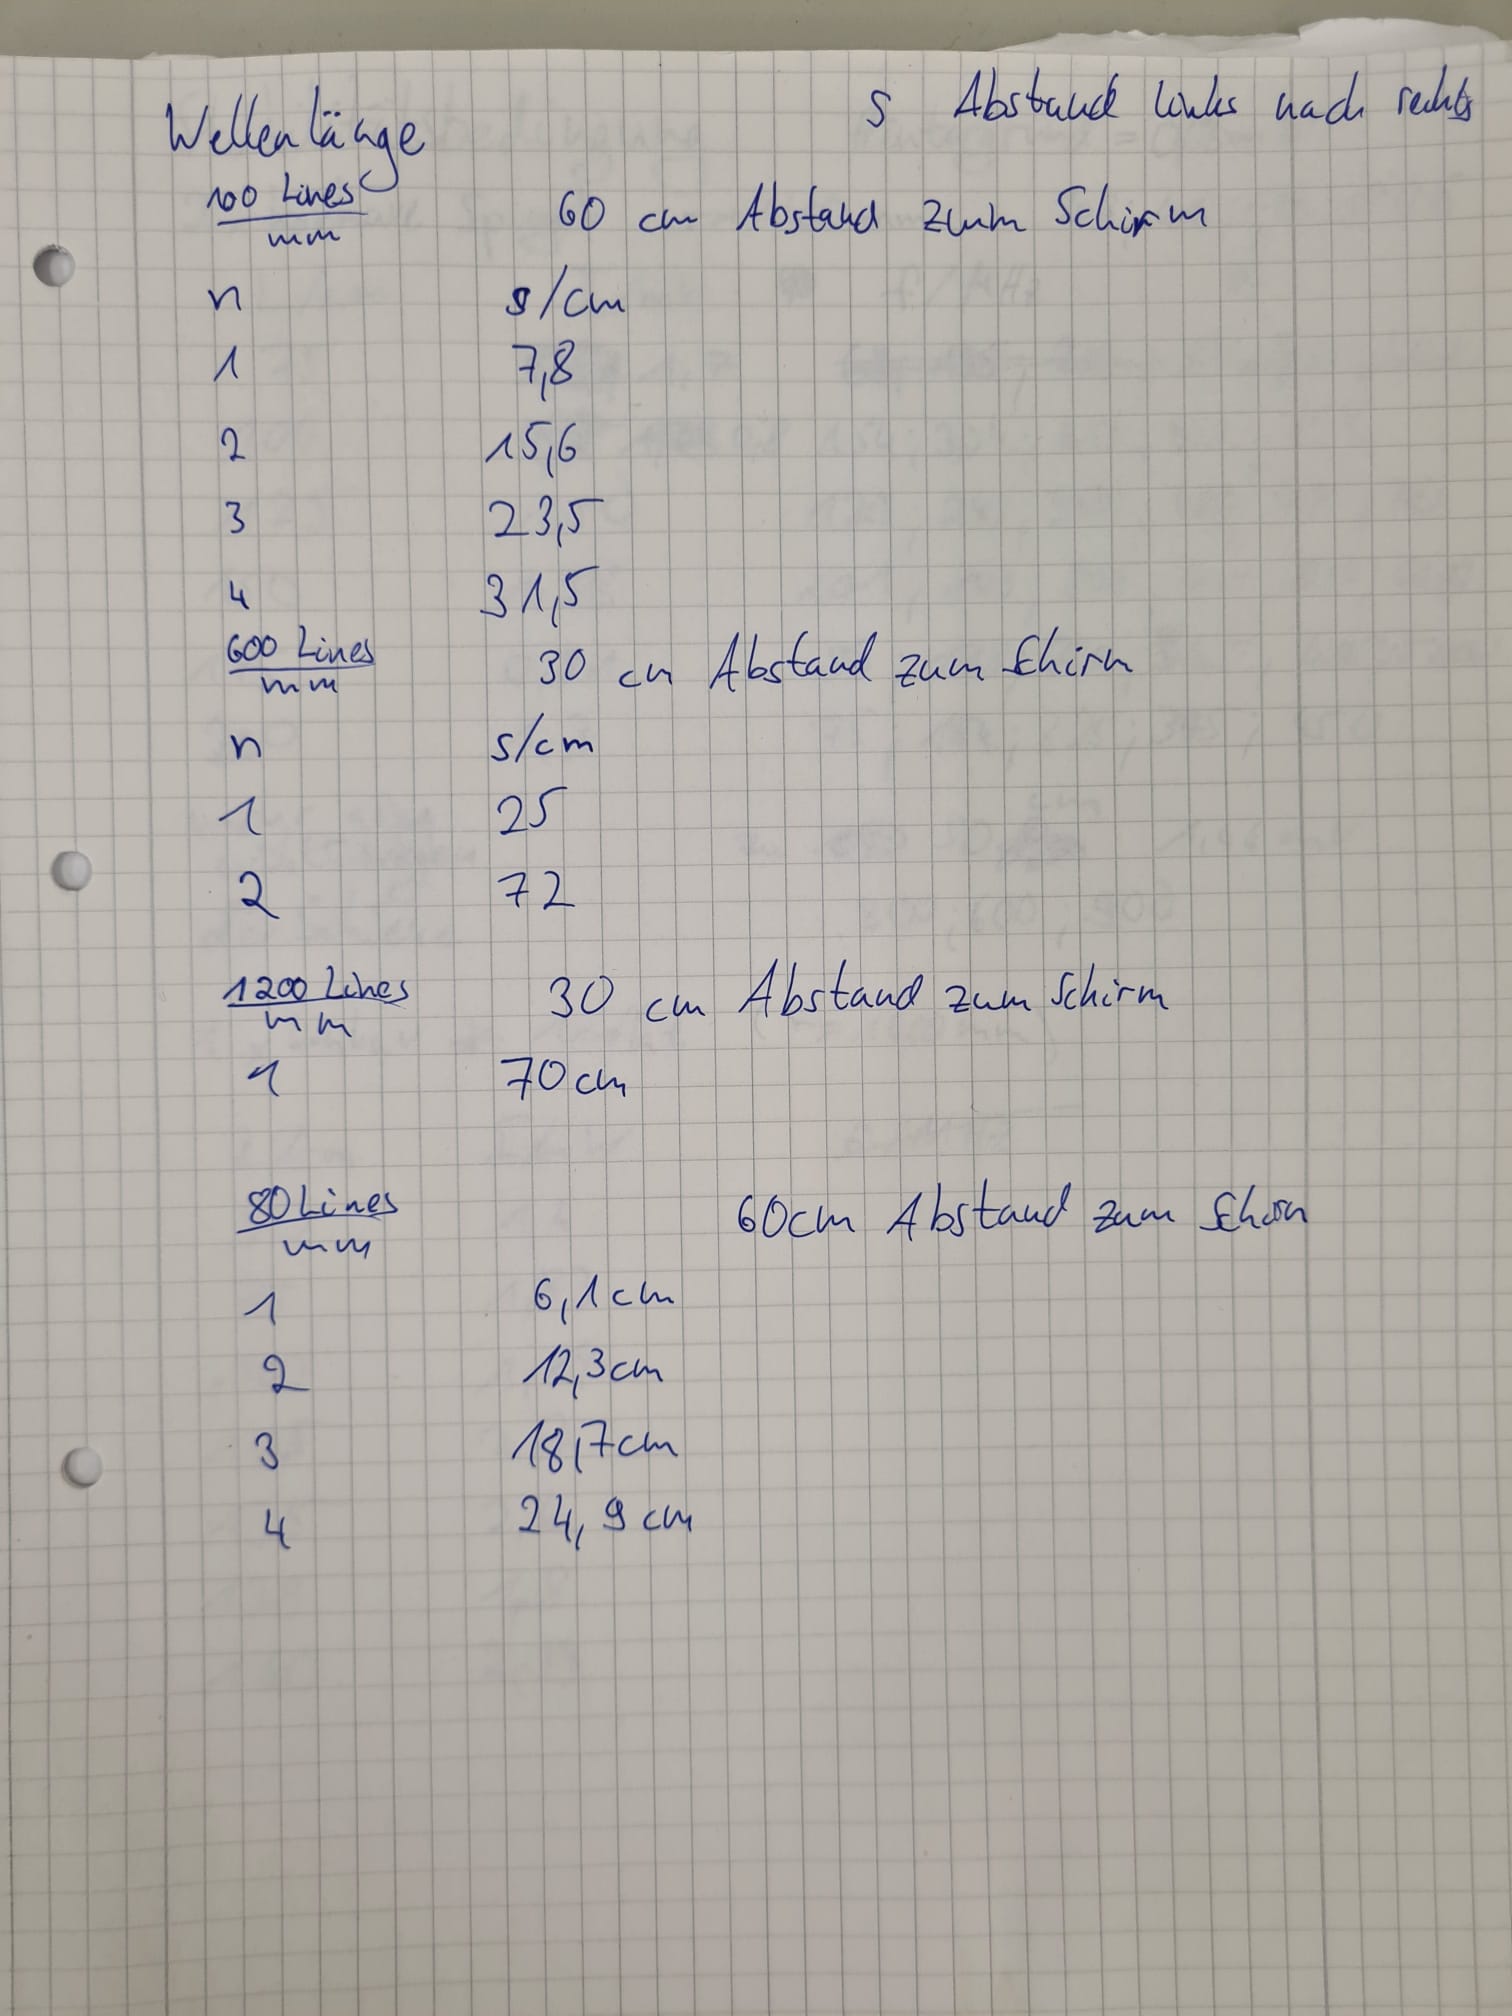 Wellenlänge s Abstand links nach rechts
100 Lines
mm
60 cm Abstand zum Schirm
n s/cm
1 7,8
2 15,6
3 23,5
4 31,5
600 Lines
mm
30 cm Abstand zum Schirm
n s/cm
1 25
2 72
1200 Lines
mm
30 cm Abstand zum Schirm
1 70cm
80 Lines
mm
60cm Abstand zum Schirm
1 6,1cm
2 12,3cm
3 18,7cm
4 24,9cm